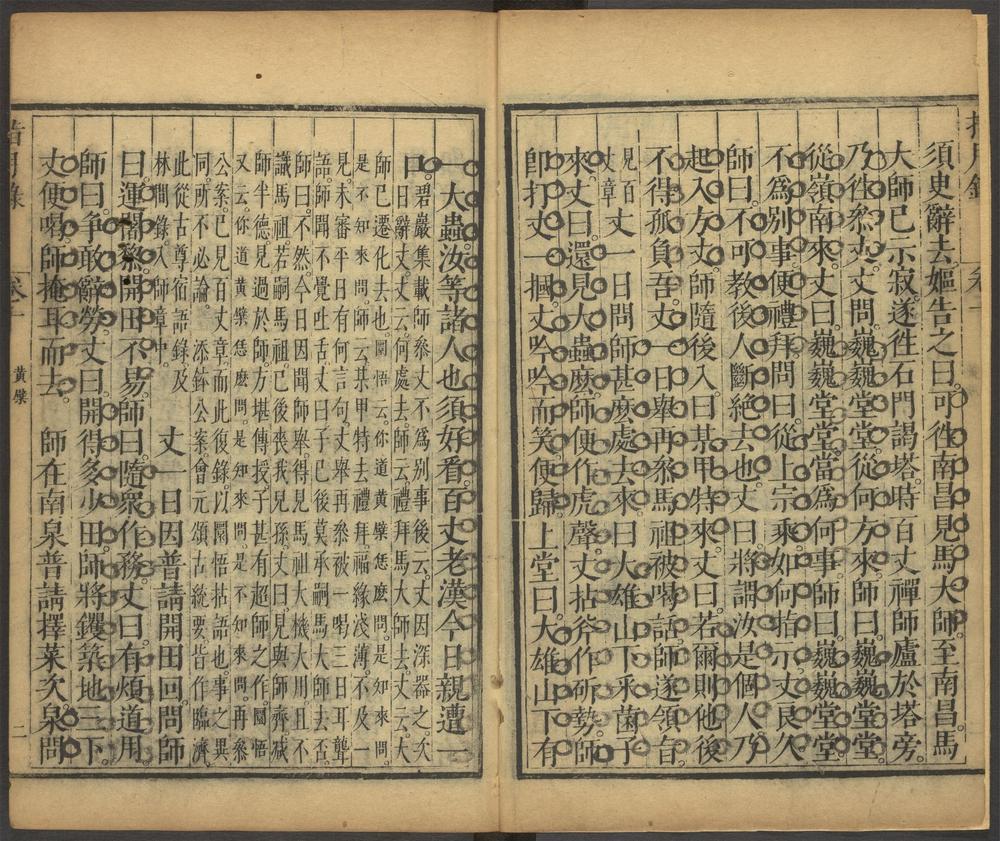 須㬰辭去嫗告之曰可徃南昌見馬大師至南昌馬
大師已示寂遂徃石門謁塔時百丈禪師廬於塔旁
乃徃叅丈丈問巍巍堂堂從何方來師曰巍巍堂堂
從嶺南來丈曰巍巍堂堂當爲何事師曰巍巍堂堂
不爲别事便禮拜問曰從上宗乘如何指示丈良久
師曰不可教後人斷絕去也丈曰將謂汝是個人乃
起入方丈師隨後入曰某甲特來丈曰若爾則他後
不得孤負吾丈一日舉再叅馬祖被喝話師遂領旨
見百
丈章
丈一日問師甚麽處去來曰大雄山下采菌子
來丈曰還見大蟲麽師便作虎聲丈拈斧作斫勢師
卽打丈一摑丈吟吟而笑便歸上堂曰大雄山下有
一大蟲汝等諸人也須好看百丈老漢今日親遭一
口
碧巖集載師叅丈不爲别事後云丈因深器之次
日辭丈丈云何處去師云禮拜馬大師去丈云大
師已遷化去也圜悟云你道黃檗怎麽問是知來問
是不知來問師云某甲特去禮拜福緣淺薄不及一
見未審平日有何言句丈舉再叅被一喝三日耳聾
語師聞不覺吐舌丈曰子已後莫承嗣馬大師去否
師曰不然今日因師舉得見馬祖大機大用且不
識馬祖若嗣馬祖已後喪我兒孫丈曰見與師齊减
師半德見過於師方堪傳授子甚有超師之作圜悟
又云你道黃檗怎麽問是知來問是不知來問再叅
公案已見百丈章而此復錄以圜悟拈語也事之異
同所不必論添鉢公案會元頌古統要皆作臨濟
此從古尊宿語錄及
林間錄入師章中
丈一日因普請開田回問師
曰運闍黎開田不易師曰隨衆作務丈曰有煩道用
師曰争敢辭勞丈曰開得多少田師將钁築地三下
丈便喝師掩耳而去
師在南泉普請擇菜次泉問
黃檗
二